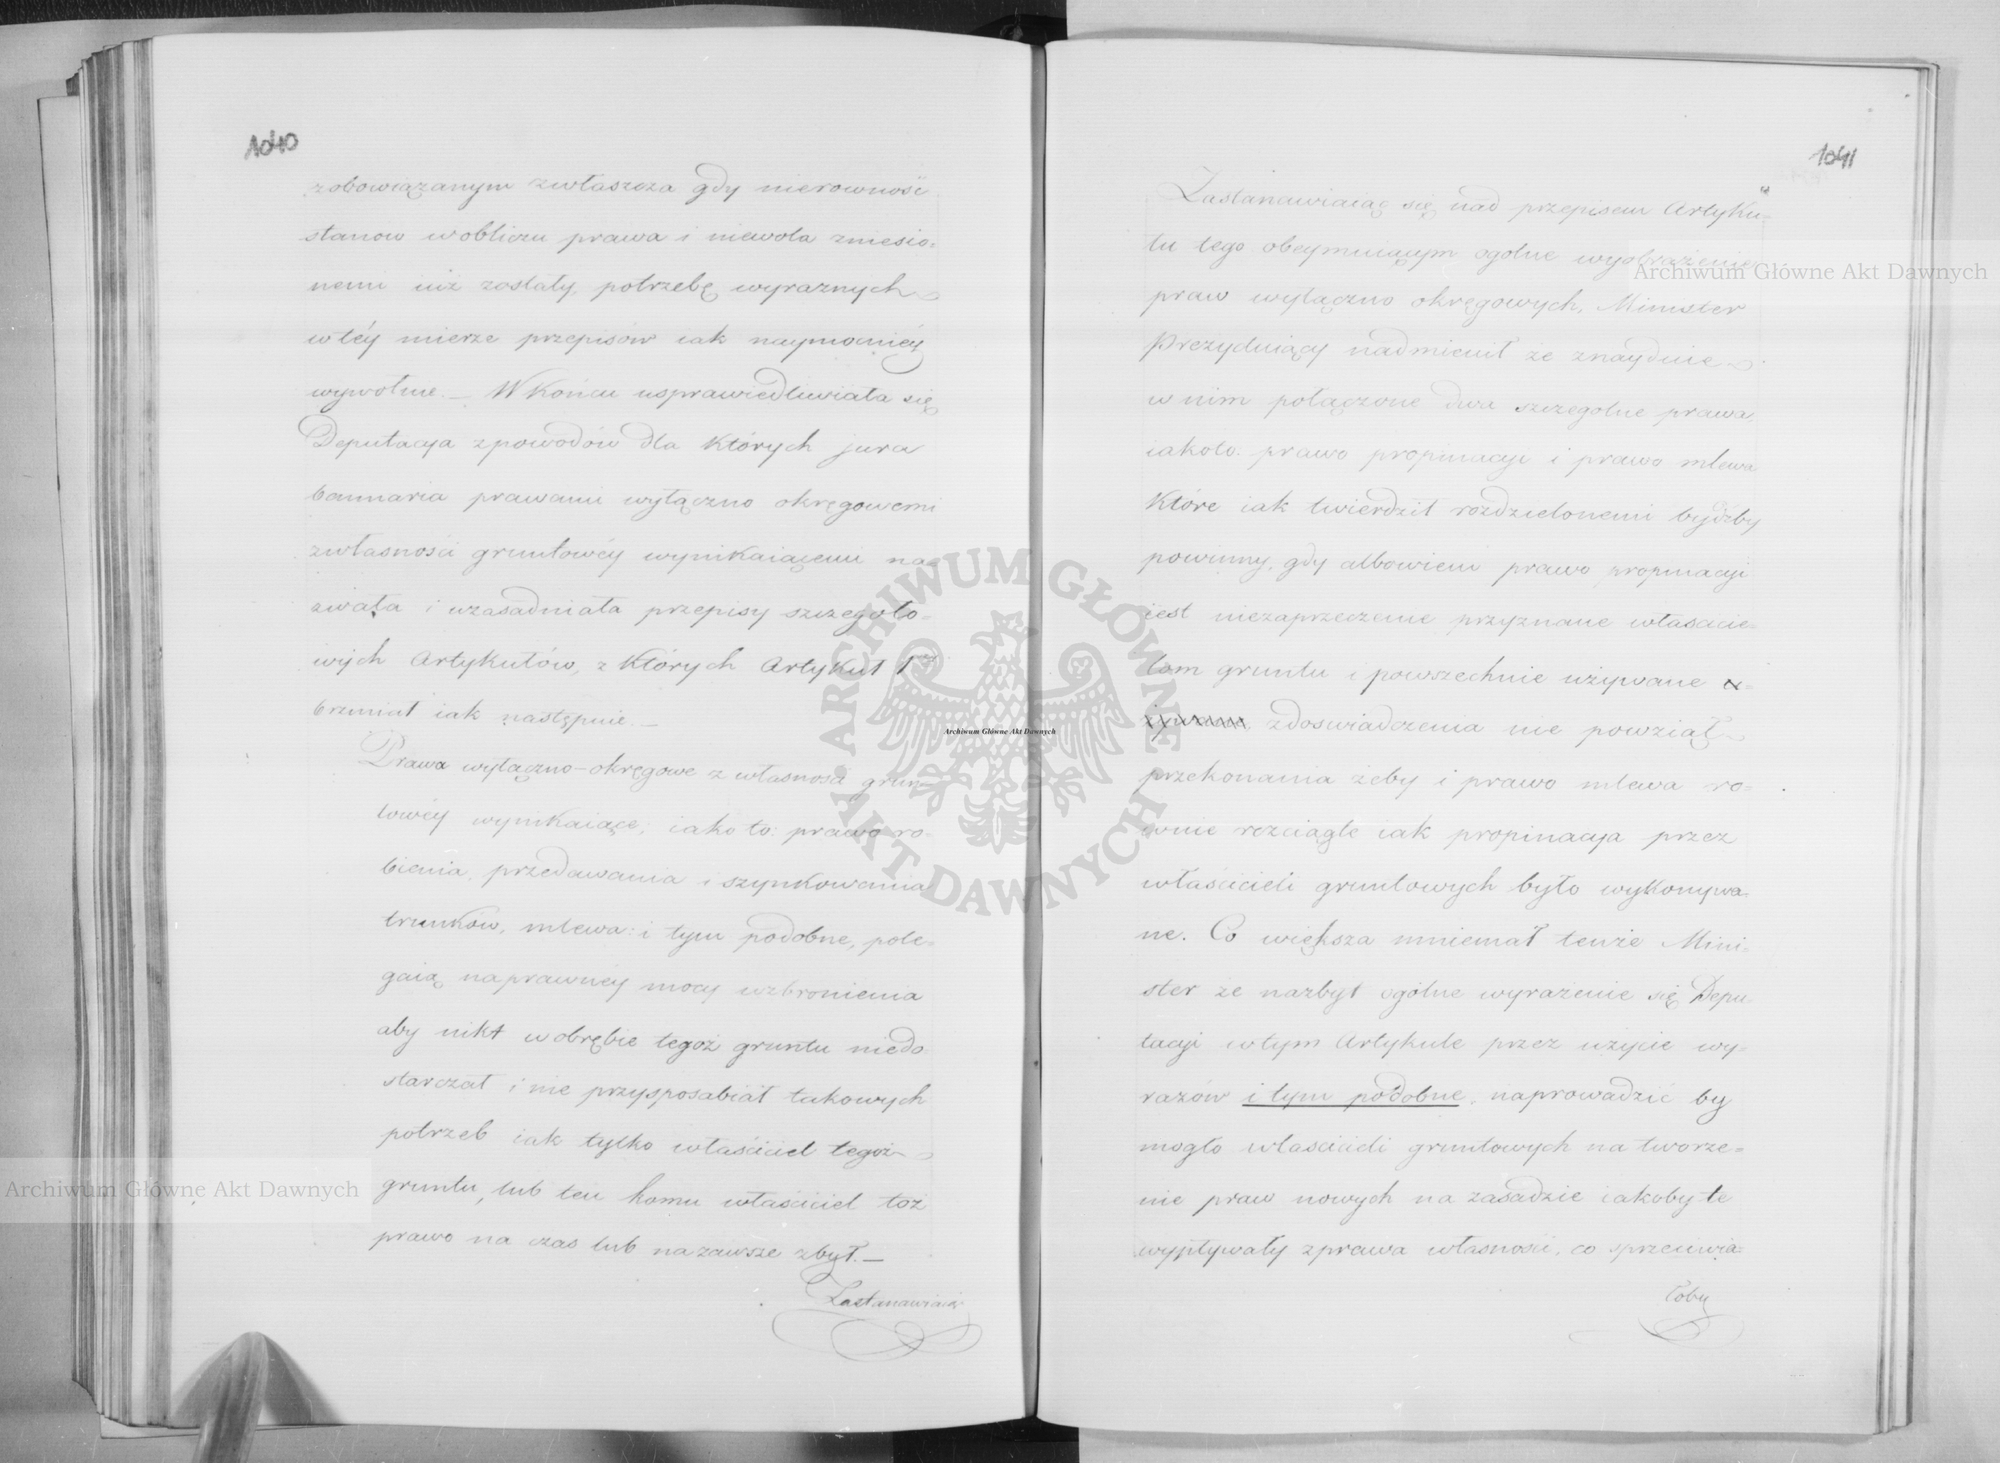 1040
zobowiązanym zwłaszcza gdy nierowność
stanow w obliczu prawa i niewola zniesio-
nemi iuż zostały, potrzebę wyraznych
w téy mierze przepisów iak naymocniéy
wywołuie. — W końcu usprawiedliwiała się
Deputacya z powodów dla których jura
bannaria prawami wyłączno okręgowemi
z własności gruntowéy wynikaiącemi na-
zwała i uzasadniała przepisy szczegóło-
wych Artykułów, z których Artykuł 1szy
brzmiał iak następuie. —
Prawa wyłączno-okręgowe z własnosci grun-
towéy wynikaiące; iako to: prawo ro-
bienia, przedawania i szynkowania
trunków, mlewa: i tym podobne, pole-
gaią na prawnéy mocy wzbronienia
aby nikt w obrębie tegoż gruntu niedo-
starczał i nie przysposabiał takowych
potrzeb iak tylko właściciel tegoż
gruntu, lub ten komu właściciel toż
prawo na czas lub na zawsze zbył. —
Zastanawiaiąc
1041
Zastanawiaiąc się nad przepisem Artyku-
łu tego obeymuiącym ogolne wyobrażenie
praw wyłączno okręgowych, Minister
Prezyduiący nadmienił że znayduie
w nim połączone dwa szczegolne prawa,
iakoto: prawo propinacyi i prawo mlewa
które iak twierdził rozdzielonemi bydźby
powinny, gdy albowiem prawo propinacyi
iest niezaprzeczenie przyznane własccie-
lom gruntu i powszechnie używane
z doswiadczenia nie powziął
przekonania żeby i prawo mlewa ro-
wnie rozciągle iak propinacya przez
właścicieli gruntowych było wykonywa-
ne. Co większa mniemał tenże Mini-
ster że nazbyt ogólne wyrażenie się Depu-
tacyi w tym Artykule przez użycie wy-
razów i tym podobne, naprowadzić by
mogło właścicieli gruntowych na tworze-
nie praw nowych na zasadzie iakoby te
wypływały z prawa własności, co sprzeciwia-
łoby
Archiwum Główne Akt Dawnych
Archiwum Główne Akt Dawnych
Archiwum Główne Akt Dawnych
ARCHIWUM GŁÓWNE AKT DAWNYCH